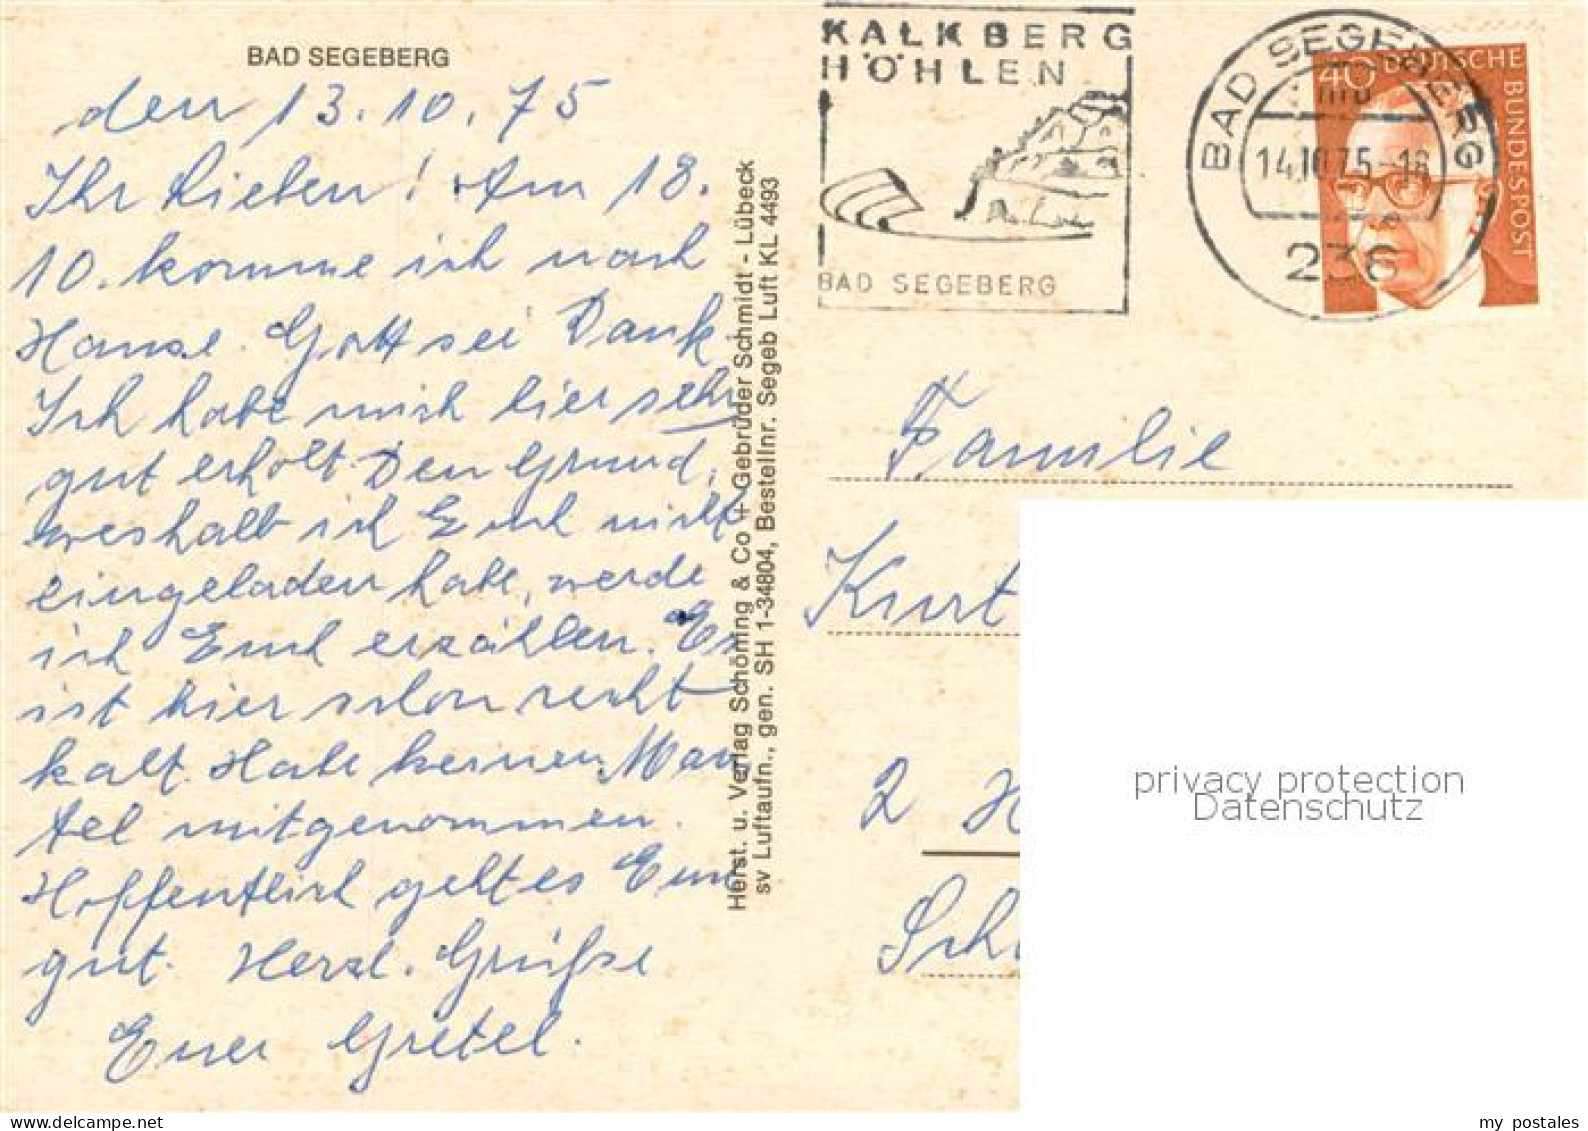 BAD SEGEBERG
den 13.10.75
Ihr Lieben! Am 18.
10. komme ich nach
Hause. Gott sei Dank
Ich habe mich hier sehr
gut erholt. Den Grund,
weshalb ich Euch nicht
eingeladen habe, werde
ich Euch erzählen. Es
ist hier schon recht
kalt. Habe keinen Man
tel mitgenommen.
Hoffentlich geht es Euch
gut. Herzl. Grüße
Euer Gretel.
Herst. u. Verlag Schöning & Co + Gebrüder Schmidt - Lübeck
sv Luftaufn., gen. SH 1-34804, Bestellnr. Segeb Luft KL 4493
KALKBERG
HÖHLEN
BAD SEGEBERG
BAD SEGEBERG
14.10.75-18
236
40 DEUTSCHE BUNDESPOST
Familie
Kurt
2 H
Sch
privacy protection
Datenschutz
my postales